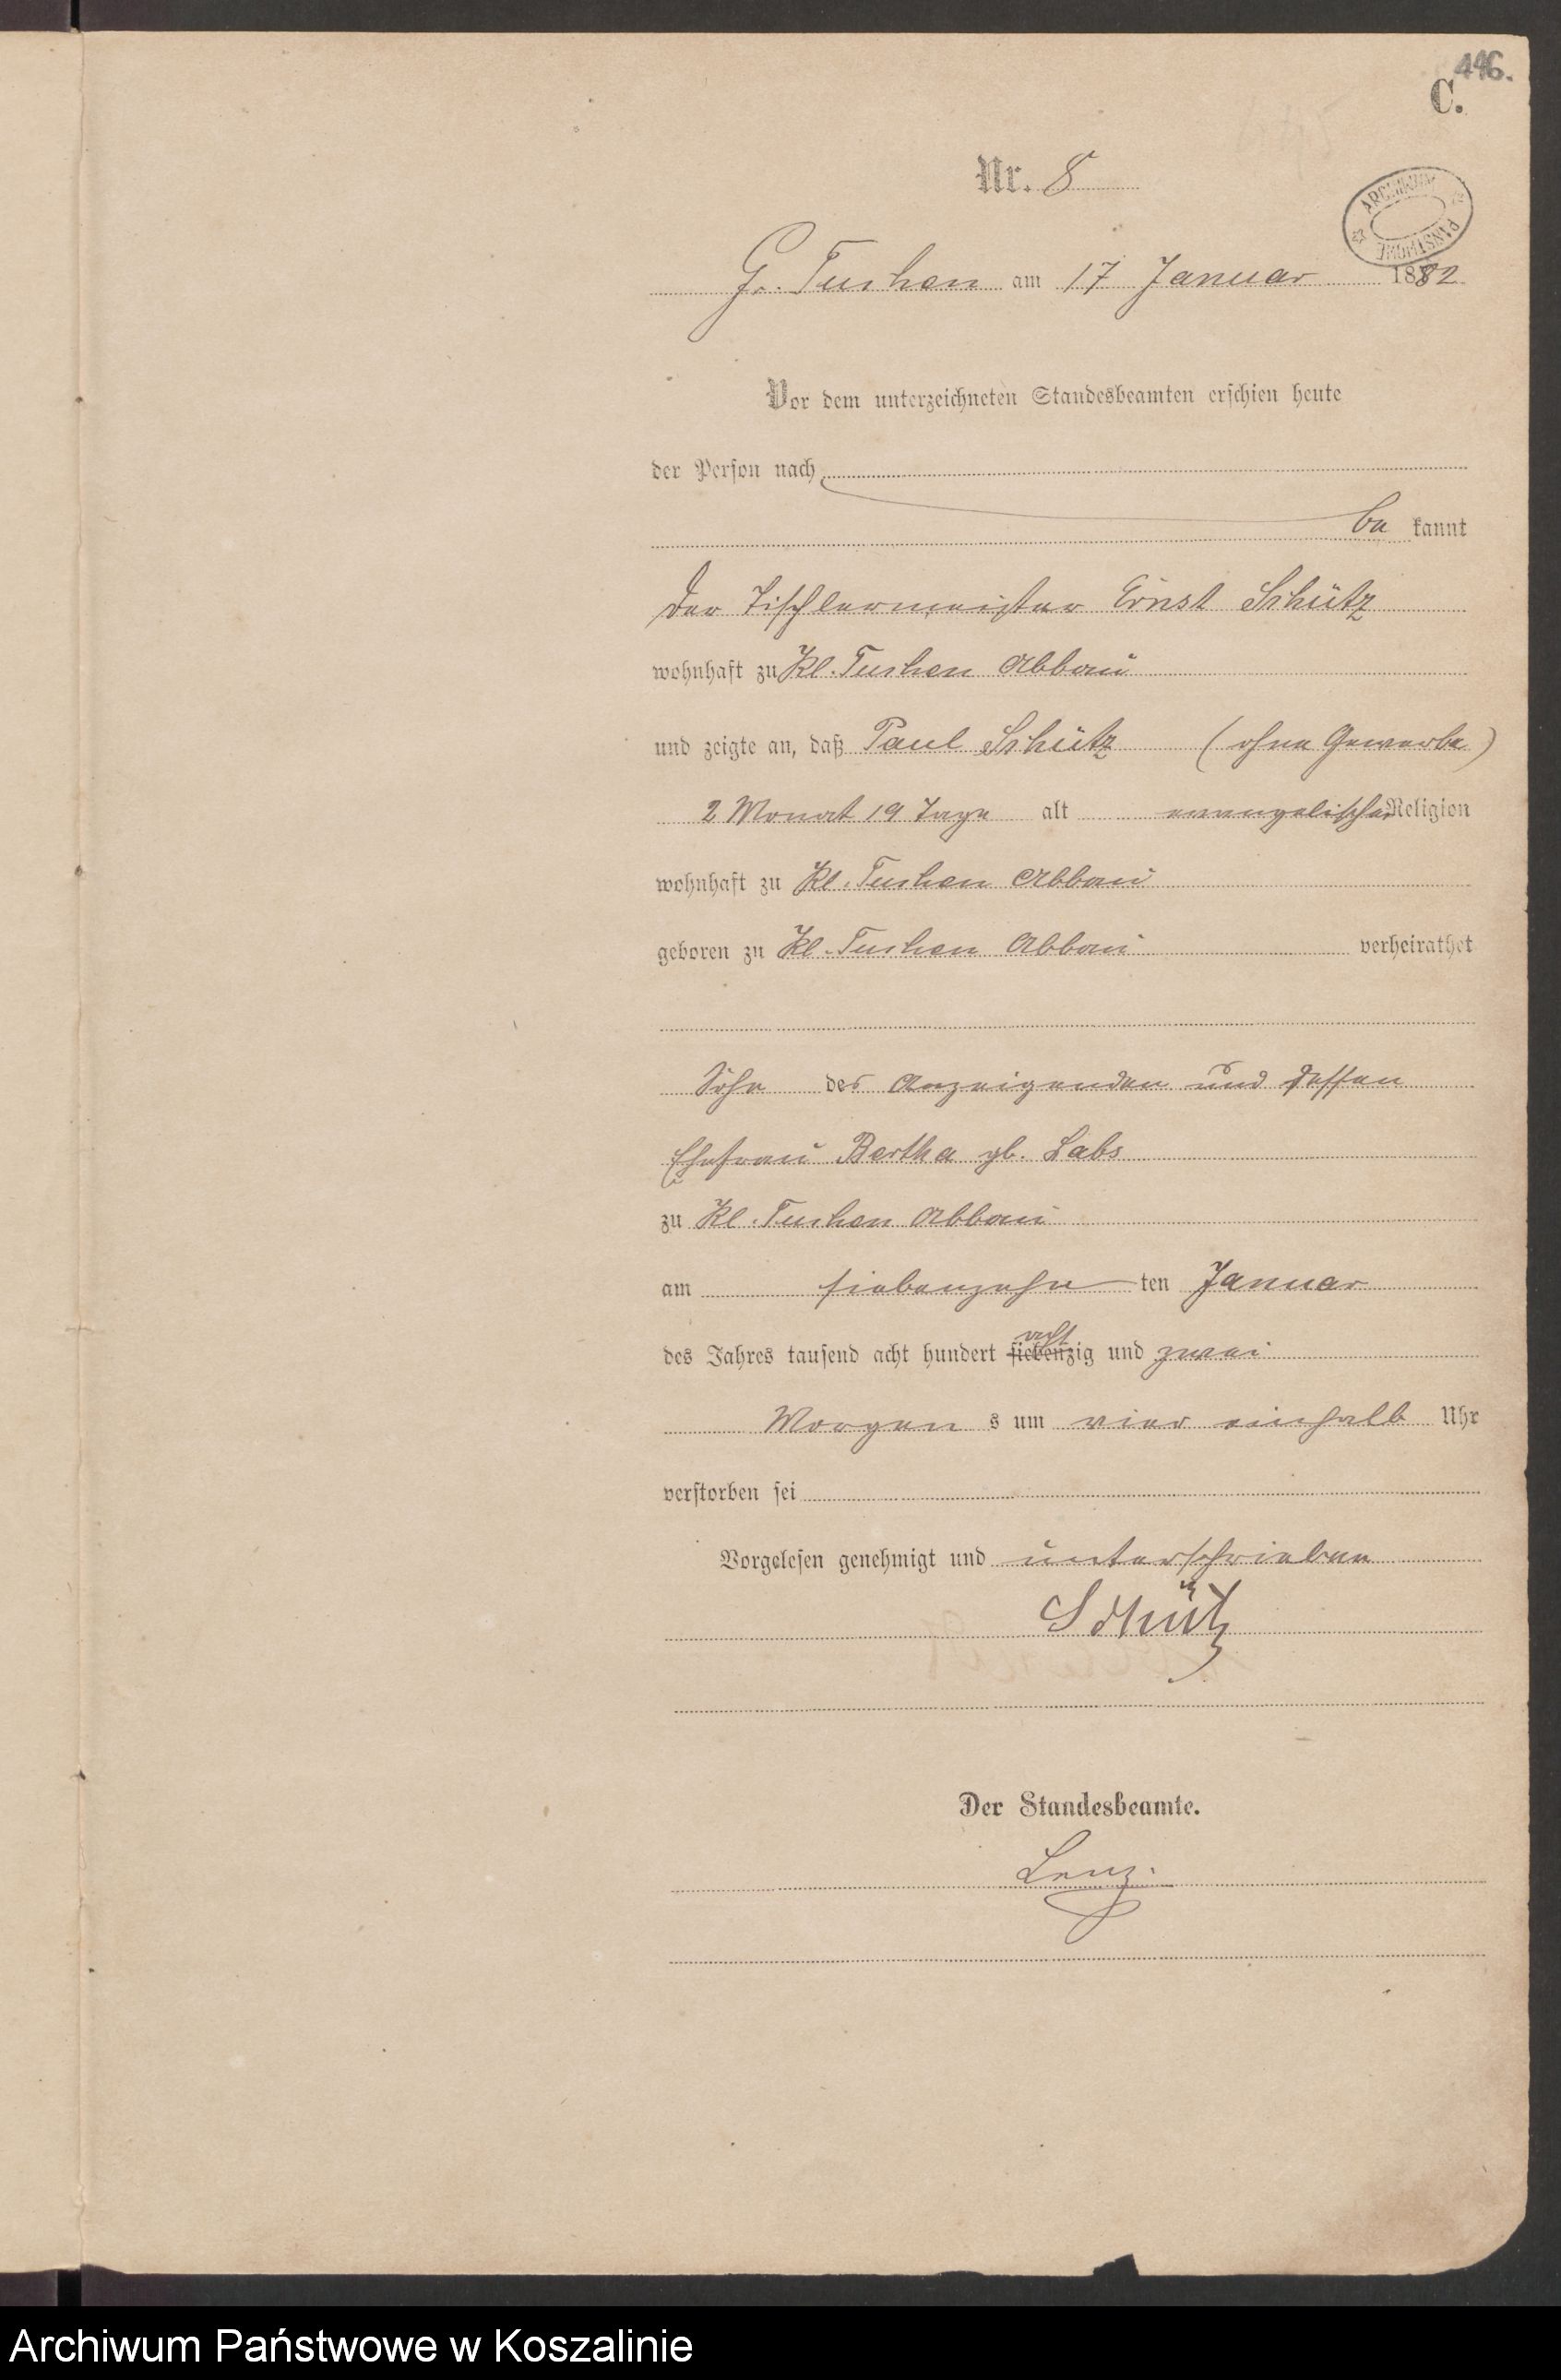 446.
C.
Nr. 8
ARCHIWUM PAŃSTWOWE
Gr. Tuchen am 17 Januar 1882.
Vor dem unterzeichneten Standesbeamten erschien heute
der Person nach
be kannt
der Tischlermeister Ernst Schütz
wohnhaft zu Kl. Tuchen Abbau
und zeigte an, daß Paul Schütz (ohne Gewerbe)
2 Monat 19 Tage alt evangelischer Religion
wohnhaft zu Kl. Tuchen Abbau
geboren zu Kl. Tuchen Abbau verheirathet
Sohn des Anzeigenden und dessen
Ehefrau Bertha gb. Labs
zu Kl. Tuchen Abbau
am siebenzehn ten Januar
acht
des Jahres tausend acht hundert siebenzig und zwei
Morgen s um vier einhalb Uhr
verstorben sei
Vorgelesen genehmigt und unterschrieben
Schütz
Der Standesbeamte.
Lenz.
Archiwum Państwowe w Koszalinie